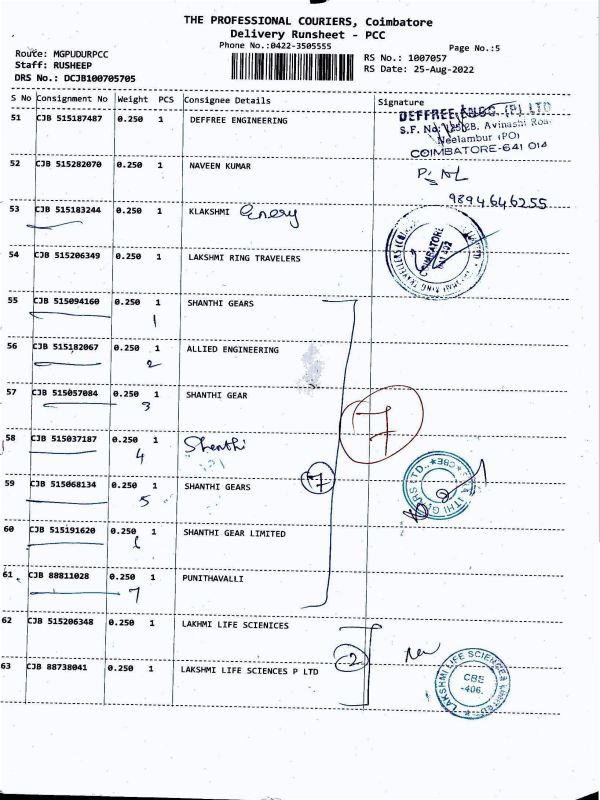 THE PROFESSIONAL COURIERS, Coimbatore
Delivery Runsheet - PCC
Phone No.:0422-3505555
Page No.:5
Route: MGPUDURPCC
Staff: RUSHEEP
DRS No.: DCJB100705705
RS No.: 1007057
RS Date: 25-Aug-2022
S No Consignment No Weight PCS Consignee Details Signature
51 CJB 515187487 0.250 1 DEFFREE ENGINEERING
DEFFREE ENGG. (P) LTD
S.F. No: Avinashi Roa
Neelambur (PO)
COIMBATORE-641 014
52 CJB 515282070 0.250 1 NAVEEN KUMAR
9894646255
53 CJB 515183244 0.250 1 KLAKSHMI Enery
54 CJB 515206349 0.250 1 LAKSHMI RING TRAVELERS
COIMBATORE
55 CJB 515094160 0.250 1 SHANTHI GEARS
1
56 CJB 515182067 0.250 1 ALLIED ENGINEERING
2
57 CJB 515057084 0.250 1 SHANTHI GEAR
3
7
58 CJB 515037187 0.250 1 Shanthi
4
59 CJB 515068134 0.250 1 SHANTHI GEARS
5
7
60 CJB 515191620 0.250 1 SHANTHI GEAR LIMITED
6
61 CJB 88811028 0.250 1 PUNITHAVALLI
7
62 CJB 515206348 0.250 1 LAKHMI LIFE SCIENICES
2
63 CJB 88738041 0.250 1 LAKHMI LIFE SCIENCES P LTD
LAKSHMI LIFE SCIENCES LIMITED
CBE
-406.